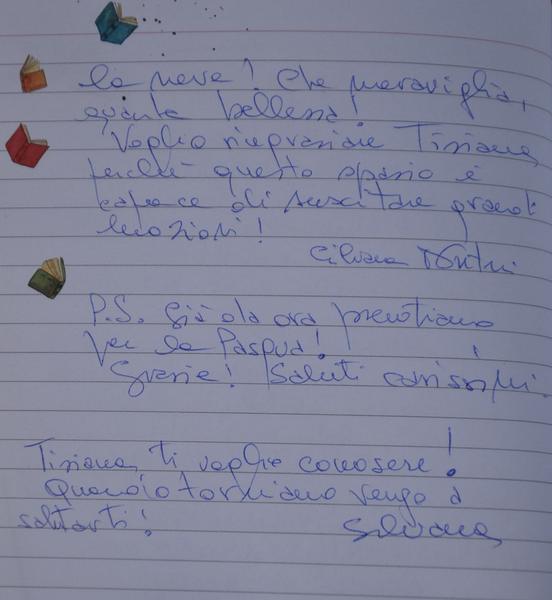 la neve! Che meraviglia,
quanta bellezza!
Voglio ringraziare Tiziana
perché questo spazio è
capace di suscitare grandi
emozioni!
Silvana
P.S. Già da ora prenotiamo
per la Pasqua!
Grazie! Saluti carissimi.
Tiziana, ti voglio conoscere!
Quando torniamo vengo a
salutarti!
Silvana